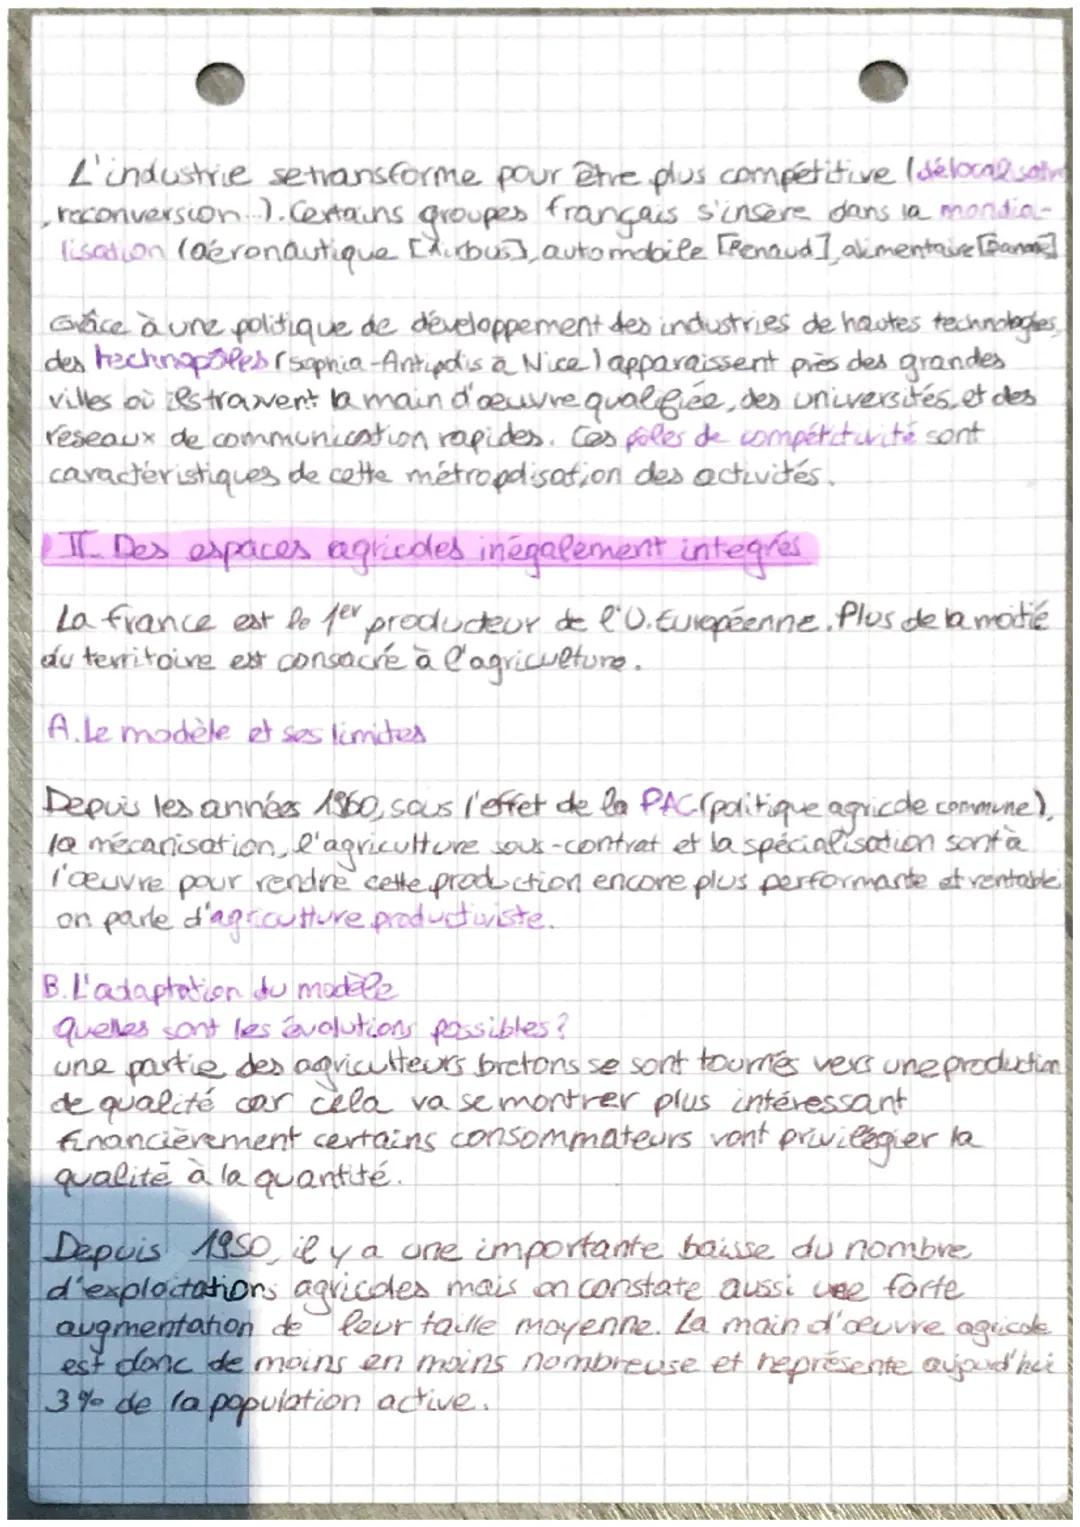 L'industrie se transforme pour être plus compétitive (délocalisation
, reconversion...). Certains groupes français s'insère dans la mondia-
lisation (aéronautique [Airbus], automobile [Renaud], alimentaire [Danone]
Grâce à une politique de développement des industries de hautes technologies,
des technopôles (Sophia-Antipolis à Nice) apparaissent près des grandes
villes où ils trouvent la main d'œuvre qualifiée, des universités, et des
réseaux de communication rapides. Ces pôles de compétitivité sont
caractéristiques de cette métropolisation des activités.
II_ Des espaces agricoles inégalement integrés
La france est le 1er producteur de l'U. Européenne. Plus de la moitié
du territoire est consacré à l'agriculture.
A. Le modèle et ses limites
Depuis les années 1960, sous l'effet de la PAC (politique agricole commune),
la mécanisation, l'agriculture sous-contrat et la spécialisation sont à
l'œuvre pour rendre cette production encore plus performante et rentable
on parle d'agriculture productiviste.
B. L'adaptation du modèle
Quelles sont les évolutions possibles?
une partie des agriculteurs bretons se sont tournés vers une production
de qualité car cela va se montrer plus intéressant
financièrement certains consommateurs vont privilégier la
qualité à la quantité.
Depuis 1950, il y a une importante baisse du nombre
d'exploitations agricoles mais on constate aussi une forte
augmentation de leur taille moyenne. La main d'œuvre agricole
est donc de moins en moins nombreuse et représente aujourd'hui
3% de la population active.